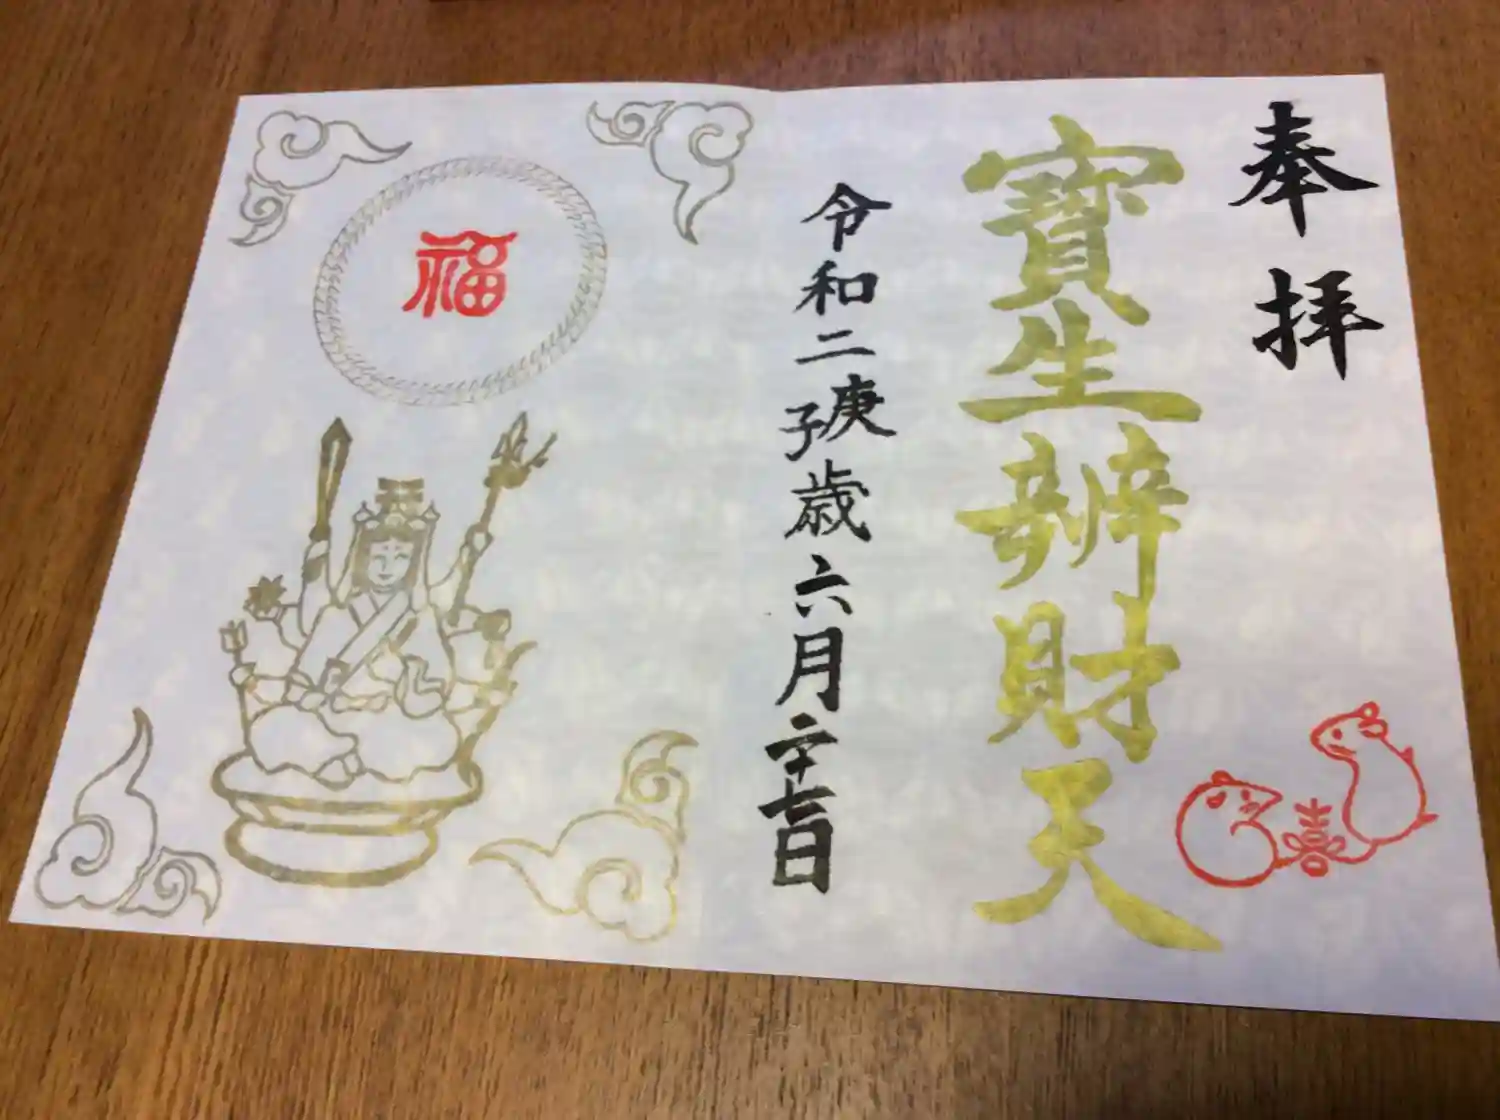 奉拝
寶生辨財天
喜
令和二庚子歳六月二十七日
福